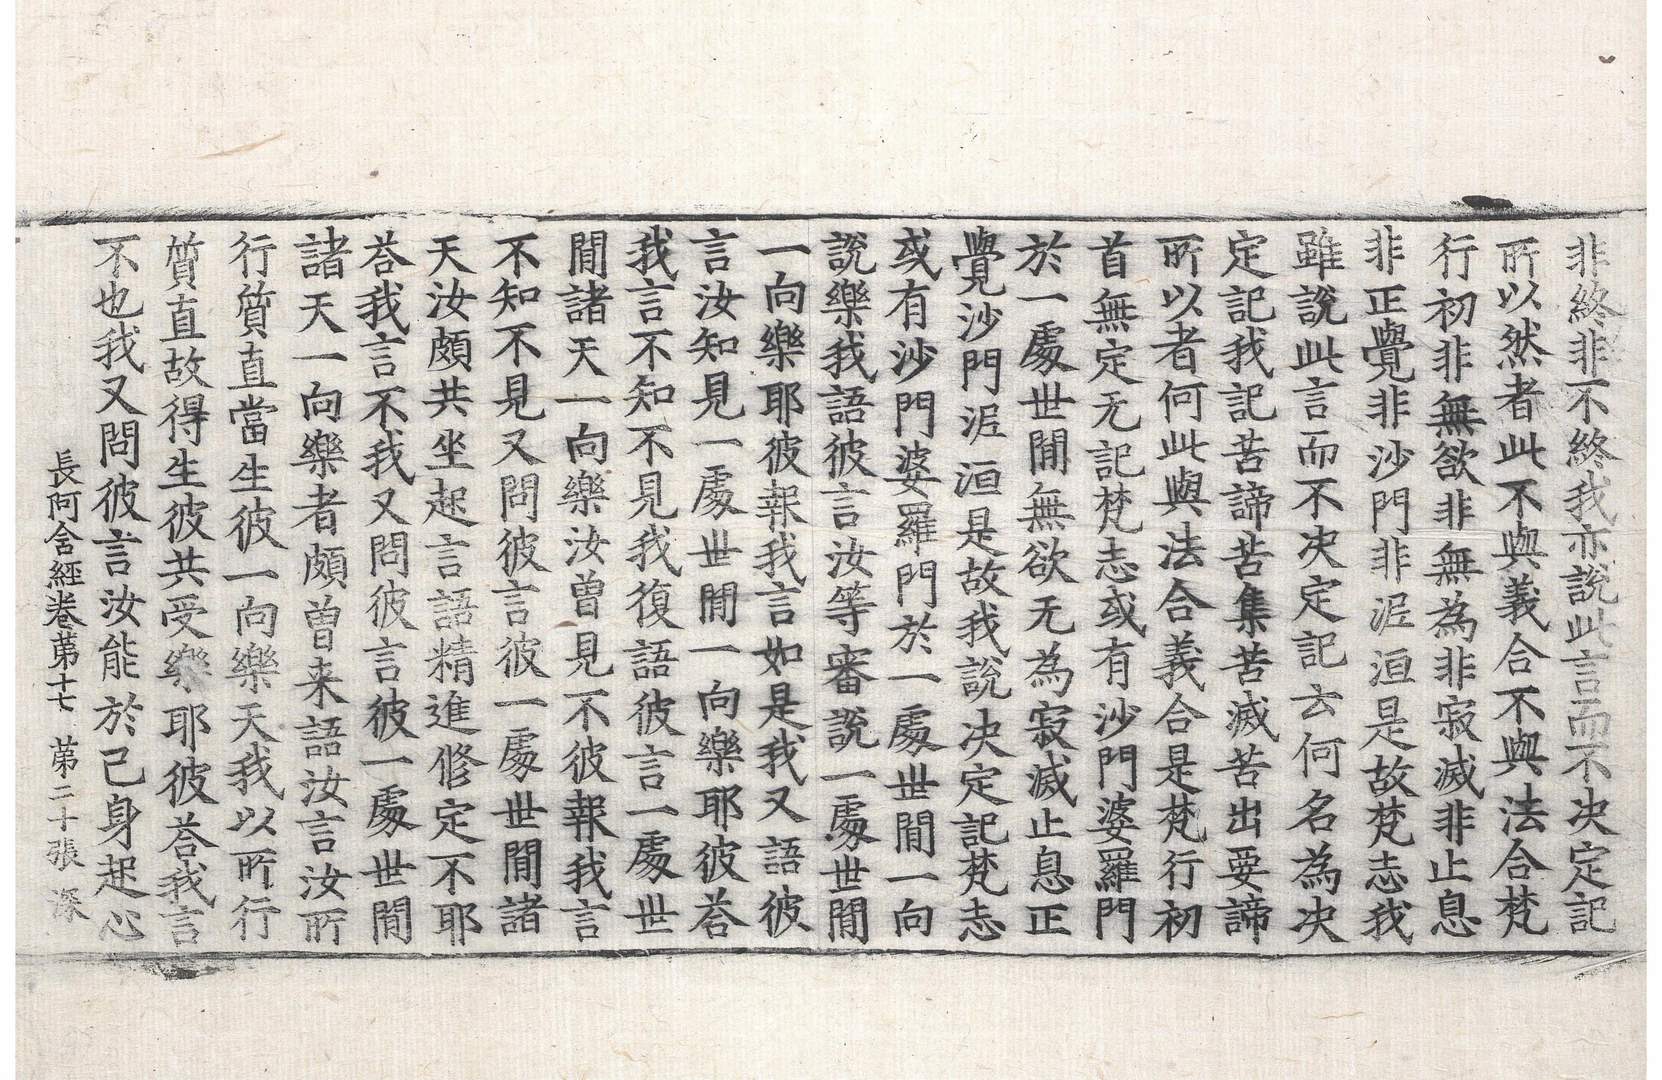 非終非不終我亦說此言而不决定記
所以然者此不與義合不與法合梵
行初非無欲非無為非寂滅非止息
非正覺非沙門非泥洹是故梵志我
雖說此言而不决定記云何名為决
定記我記苦諦苦集苦滅苦出要諦
所以者何此與法合義合是梵行初
首無定无記梵志或有沙門婆羅門
於一處世間無欲无為寂滅止息正
覺沙門泥洹是故我說决定記梵志
或有沙門婆羅門於一處世間一向
說樂我語彼言汝等審說一處世間
一向樂耶彼報我言如是我又語彼
言汝知見一處世間一向樂耶彼荅
我言不知不見我復語彼言一處世
間諸天一向樂汝曾見不彼報我言
不知不見又問彼言彼一處世間諸
天汝頗共坐起言語精進修定不耶
荅我言不我又問彼言彼一處世間
諸天一向樂者頗曾来語汝言汝所
行質直當生彼一向樂天我以所行
質直故得生彼共受樂耶彼荅我言
不也我又問彼言汝能於己身起心
長阿含經卷苐十七 苐二十張 深